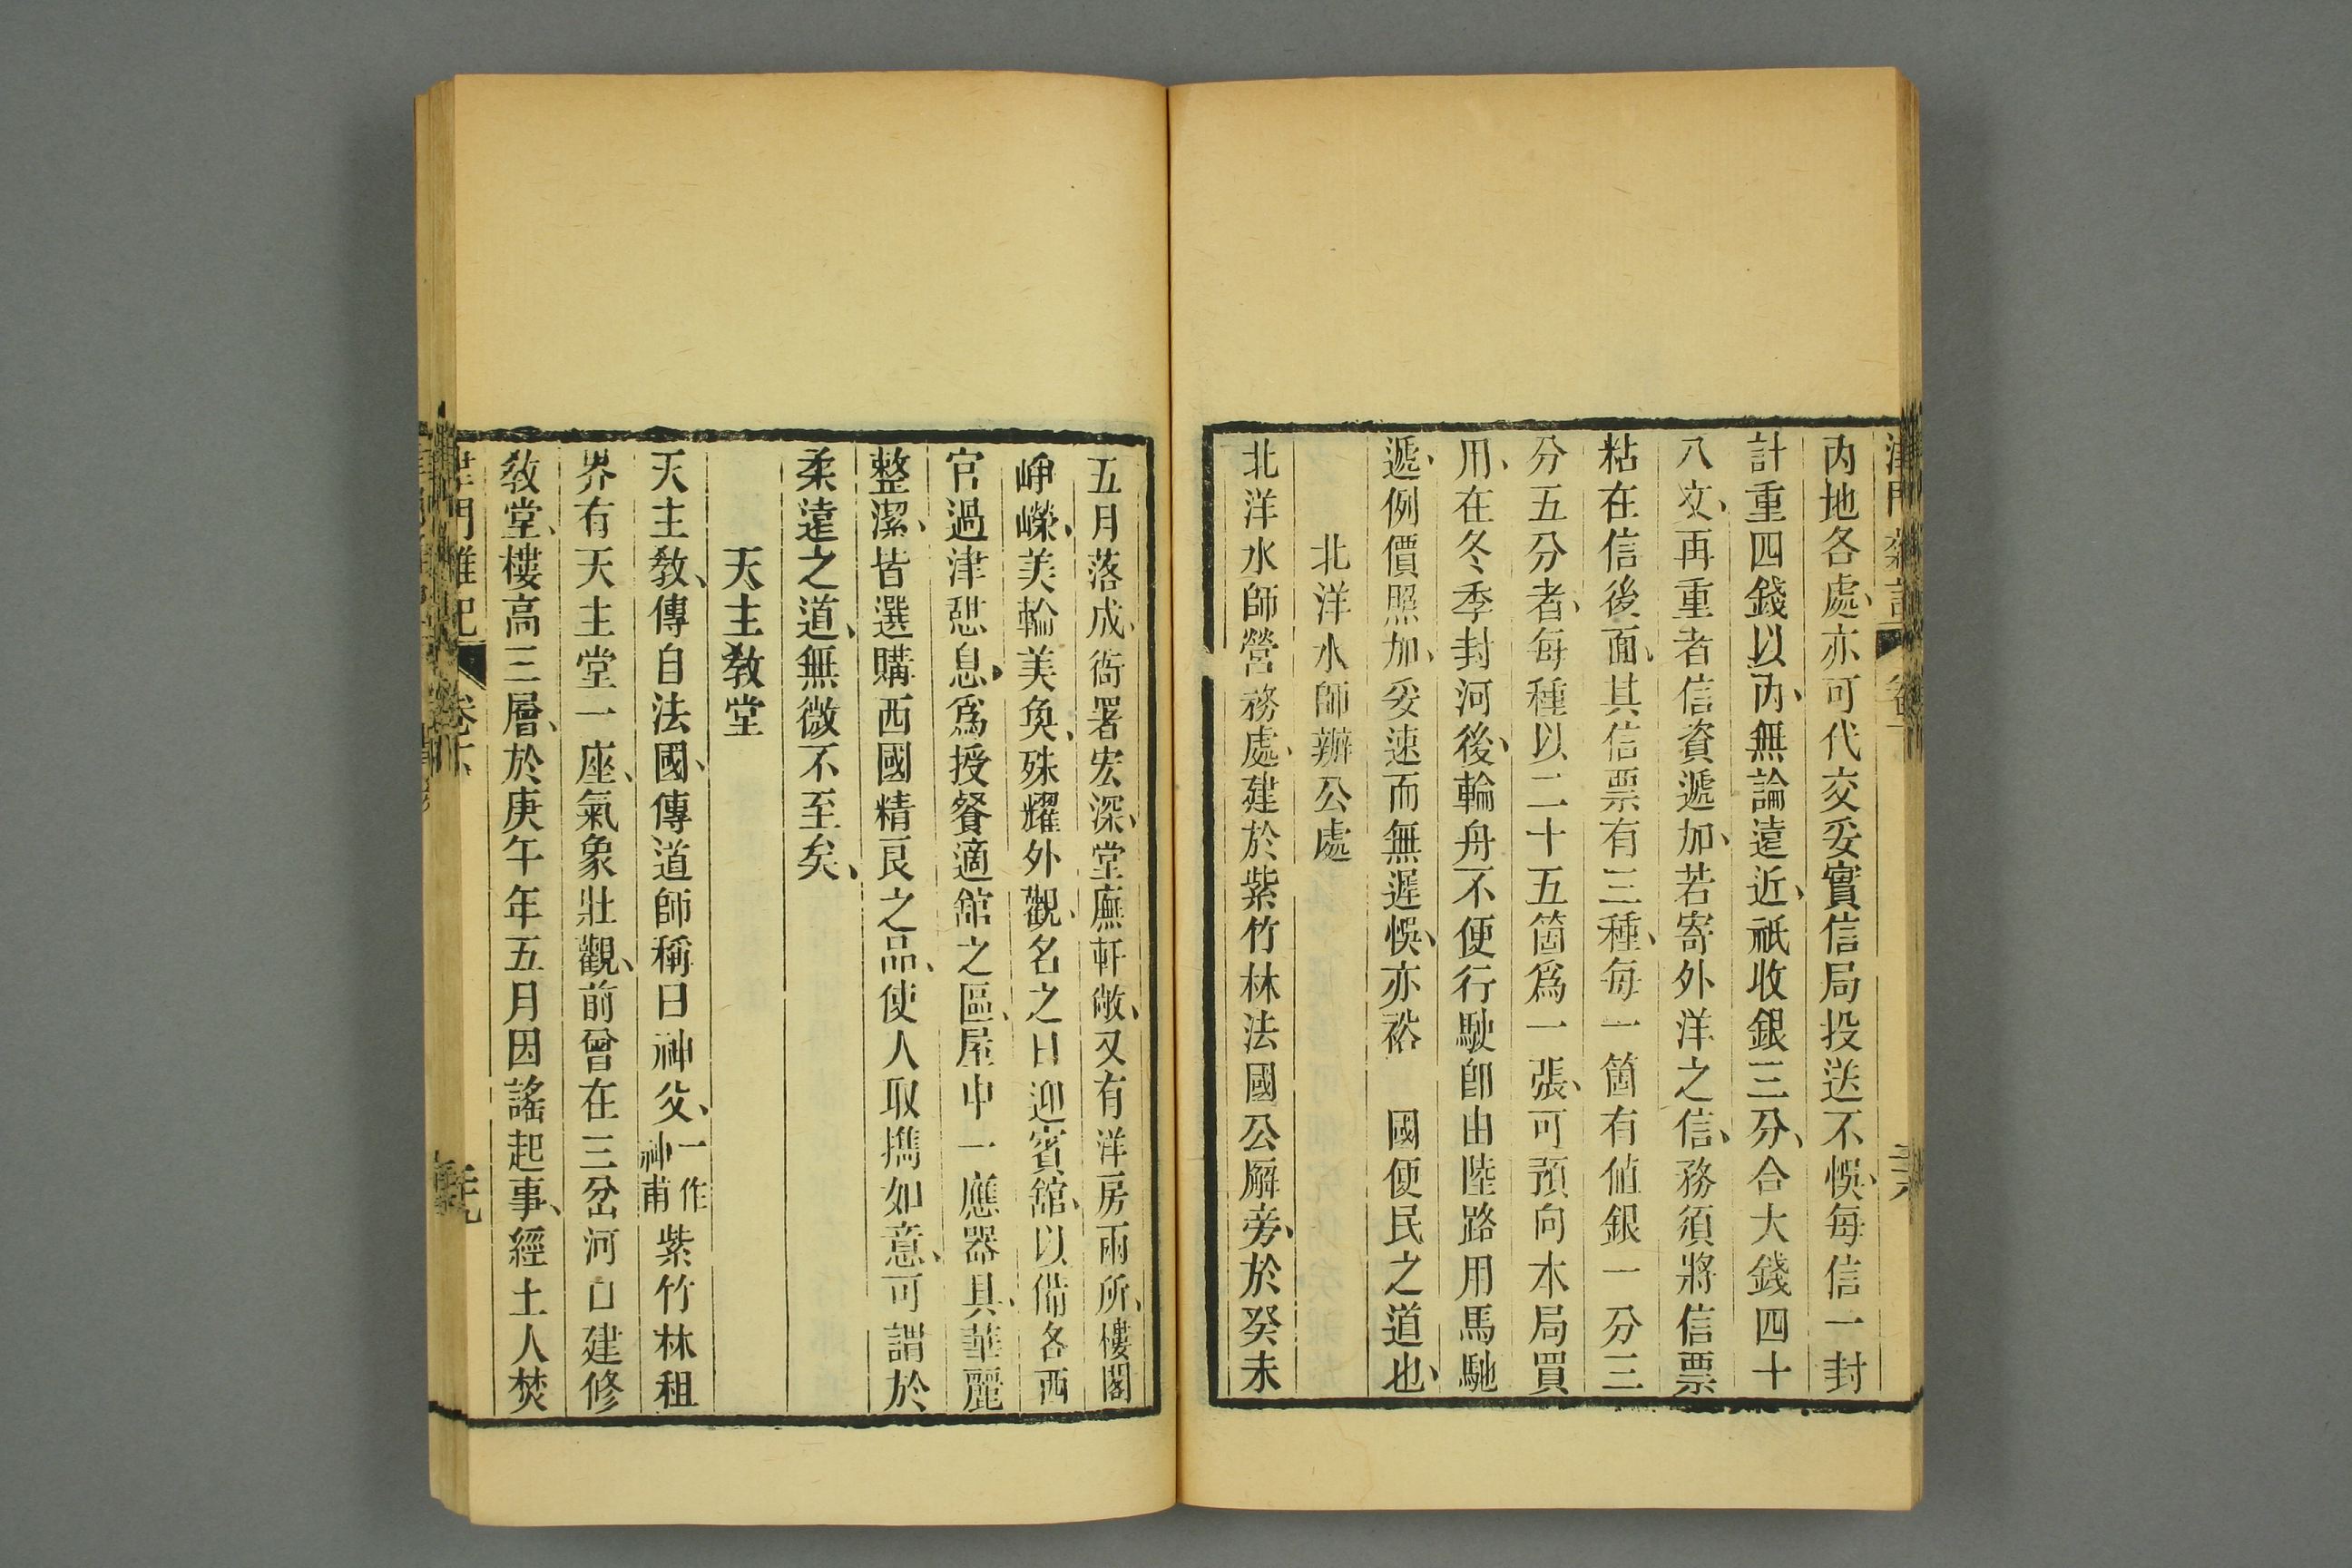 內地各處、亦可代交妥實信局投送不悞、每信一封
計重四錢以內、無論遠近、祇收銀三分、合大錢四十
八文、再重者信資遞加、若寄外洋之信、務須將信票
粘在信後面、其信票有三種、每一箇有值銀一分三
分五分者、每種以二十五箇爲一張、可預向本局買
用、在冬季封河後、輪舟不便行駛卽由陸路用馬馳
遞、例價照加、妥速而無遲悞、亦裕　國便民之道也、
北洋水師辦公處
北洋水師營務處、建於紫竹林法國公廨旁、於癸未
五月落成、衙署宏深、堂廡軒敞、又有洋房兩所、樓閣
崢嶸、美輪美奐、殊耀外觀、名之曰迎賓舘、以備各西
官過津憇息、爲授餐適舘之區、屋中一應器具、華麗
整潔、皆選購西國精良之品、使人取擕如意、可謂於
柔遠之道、無微不至矣、
天主教堂
天主教、傳自法國、傳道師稱曰神父、一作神甫紫竹林租
界有天主堂一座、氣象壯觀、前曾在三岔河口建修
教堂、樓高三層、於庚午年五月因謠起事、經土人焚
門雜記
卷下